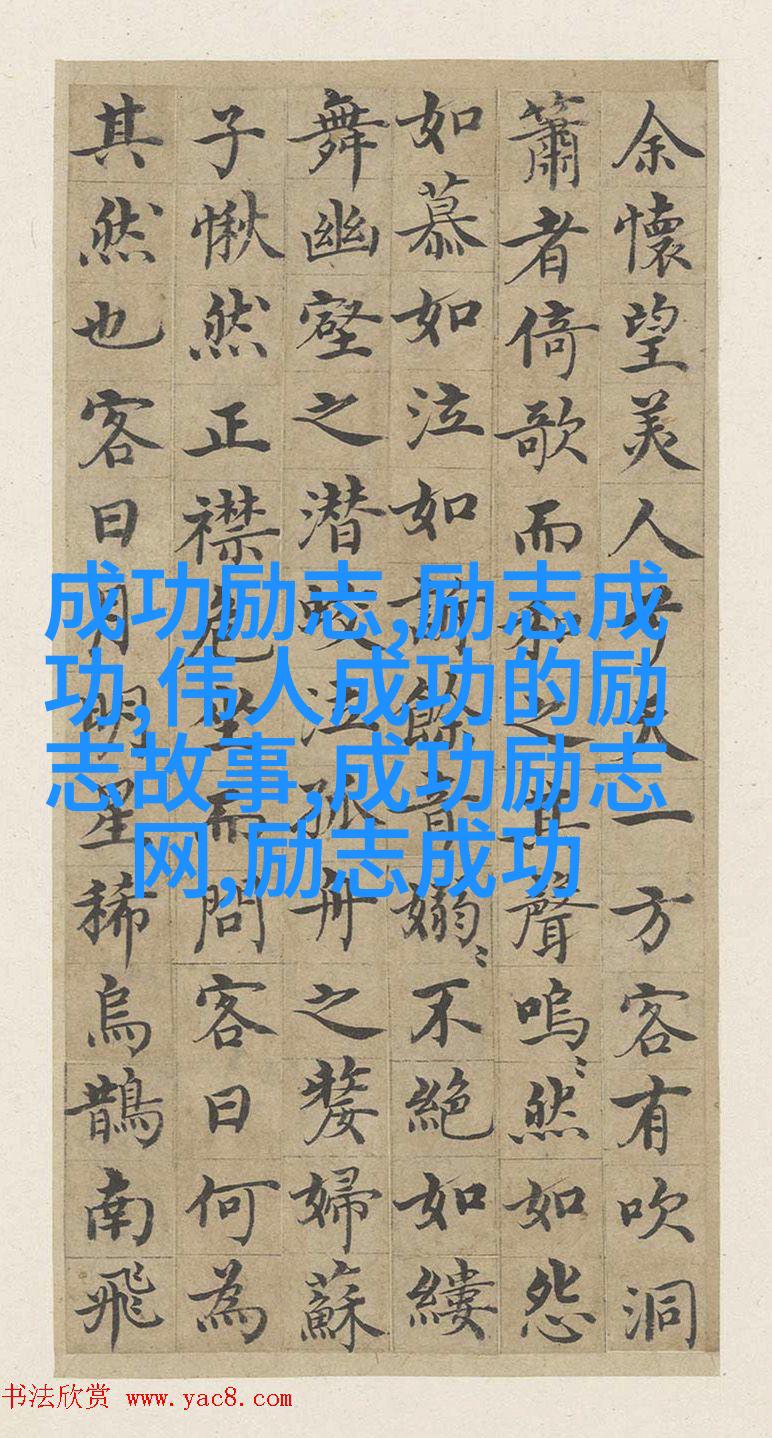 余懷望美人兮天一方客有吹洞
簫者倚歌而和之其聲嗚〻然如怨
如慕如泣如訴餘音嫋〻不絶如縷
舞幽壑之潜蛟泣孤舟之嫠婦蘇
子愀然正襟危坐而問客曰何為
其然也客曰月明星稀烏鵲南飛
成功励志,励志成
功,伟人成功的励
志故事,成功励志
网,励志成功
书法欣赏 www.yac8.com